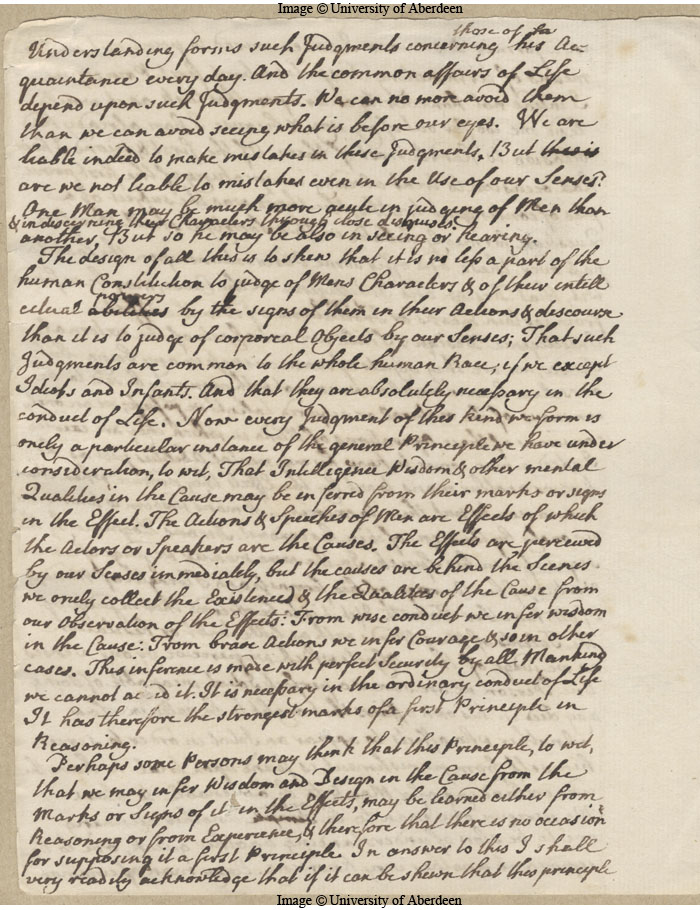 Image © University of Aberdeen
those of
Understanding forms such Judgments concerning his Ac-
quaintance every day. And the common affairs of Life
depend upon such Judgments. We can no more avoid them
than we can avoid seeing what is before our eyes. We are
liable indeed to make mistakes in these Judgments, But this is
are we not liable to mistakes even in the Use of our Senses?
One Man may be much more acute in judging of Men than
& in discerning their Characters through close disguises
another, But so he may be also in seeing or hearing.
The design of all this is to shew that it is no less a part of the
human Constitution to judge of Mens Characters & of their intell
powers
ectual abilities by the signs of them in their Actions & discourse
than it is to judge of corporeal Objects by our Senses; That such
Judgments are common to the whole human Race; if we except
Idiots and Infants. And that they are absolutely necessary in the
conduct of Life. Now every Judgment of this kind we form is
onely a particular instance of the general Principle we have under
consideration, to wit, That Intelligence Wisdom & other mental
Qualities in the Cause may be inferred from their marks or signs
in the Effect. The Actions & Speeches of Men are Effects of which
the Actors or Speakers are the Causes. The Effects are perceived
by our Senses immediately, but the causes are behind the Scenes
we onely collect the Existence & the Qualities of the Cause from
our Observation of the Effects: From wise conduct we infer wisdom
in the Cause: From brave Actions we infer Courage & so in other
cases. This inference is made with perfect Security by all Mankind
we cannot a id it. It is necessary in the ordinary conduct of Life
It has therefore the strongest marks of a first Principle in
Reasoning.
Perhaps some Persons may think that this Principle, to wit,
that we may infer Wisdom and Design in the Cause from the
Marks or Signs of it in the Effects, may be learned either from
Reasoning or from Experience, & therefore that there is no occasion
for supposing it a first Principle. In answer to this I shall
very readily acknowledge that if it can be shewn that this principle
Image © University of Aberdeen